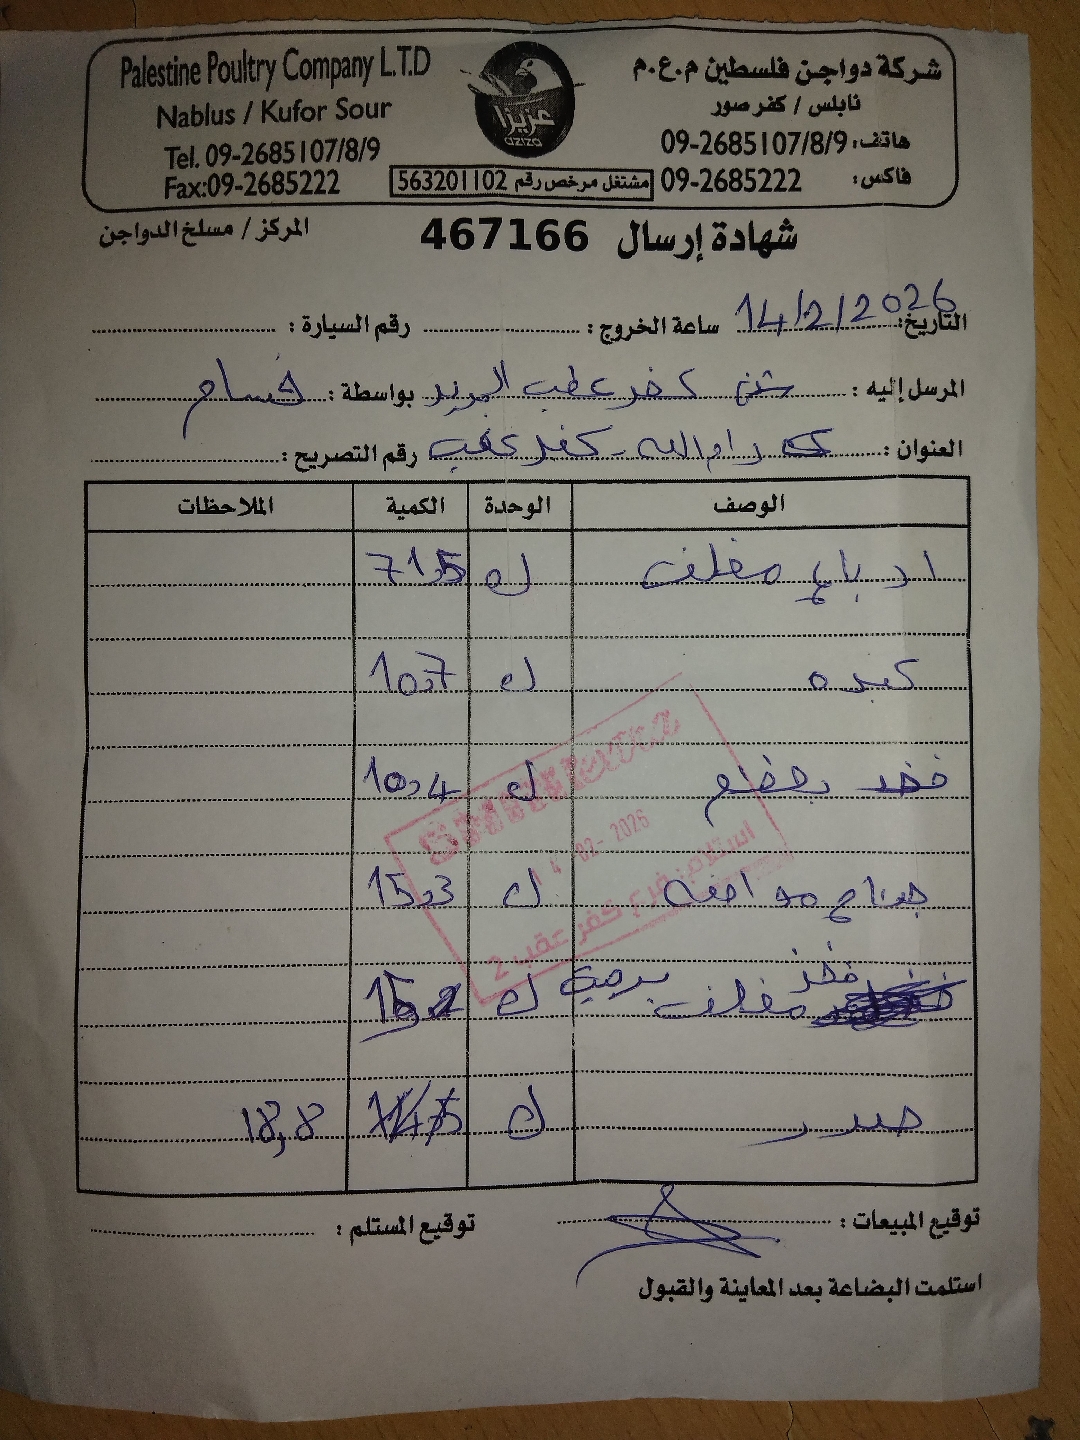 Palestine Poultry Company L.T.D
شركة دواجن فلسطين م.ع.م
Nablus / Kufor Sour
نابلس / كفر صور
Tel. 09-2685107/8/9
هاتف: 09-2685107/8/9
Fax:09-2685222
فاكس: 09-2685222
مشتغل مرخص رقم 563201102
عزيزا
aziza
شهادة إرسال 467166
المركز / مسلخ الدواجن
التاريخ: 14/2/2026 ساعة الخروج : رقم السيارة :
المرسل إليه : كفر عقب بواسطة :
العنوان : رام الله - كفر عقب رقم التصريح :
الوصف الوحدة الكمية الملاحظات
ارباع مغلف ك 71,5
كبده ك 10,7
فخد بعظم ك 10,4
جناح ك 15,3
فخذ مغلف ك
صدر ك 18,8
14-02-2026
استلام فرع كفر عقب 2
توقيع المبيعات : توقيع المستلم :
استلمت البضاعة بعد المعاينة والقبول